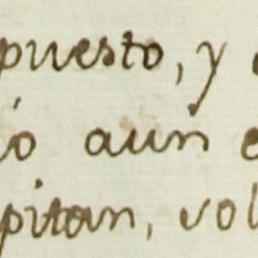 puesto, y
io aun e
pitan, vol